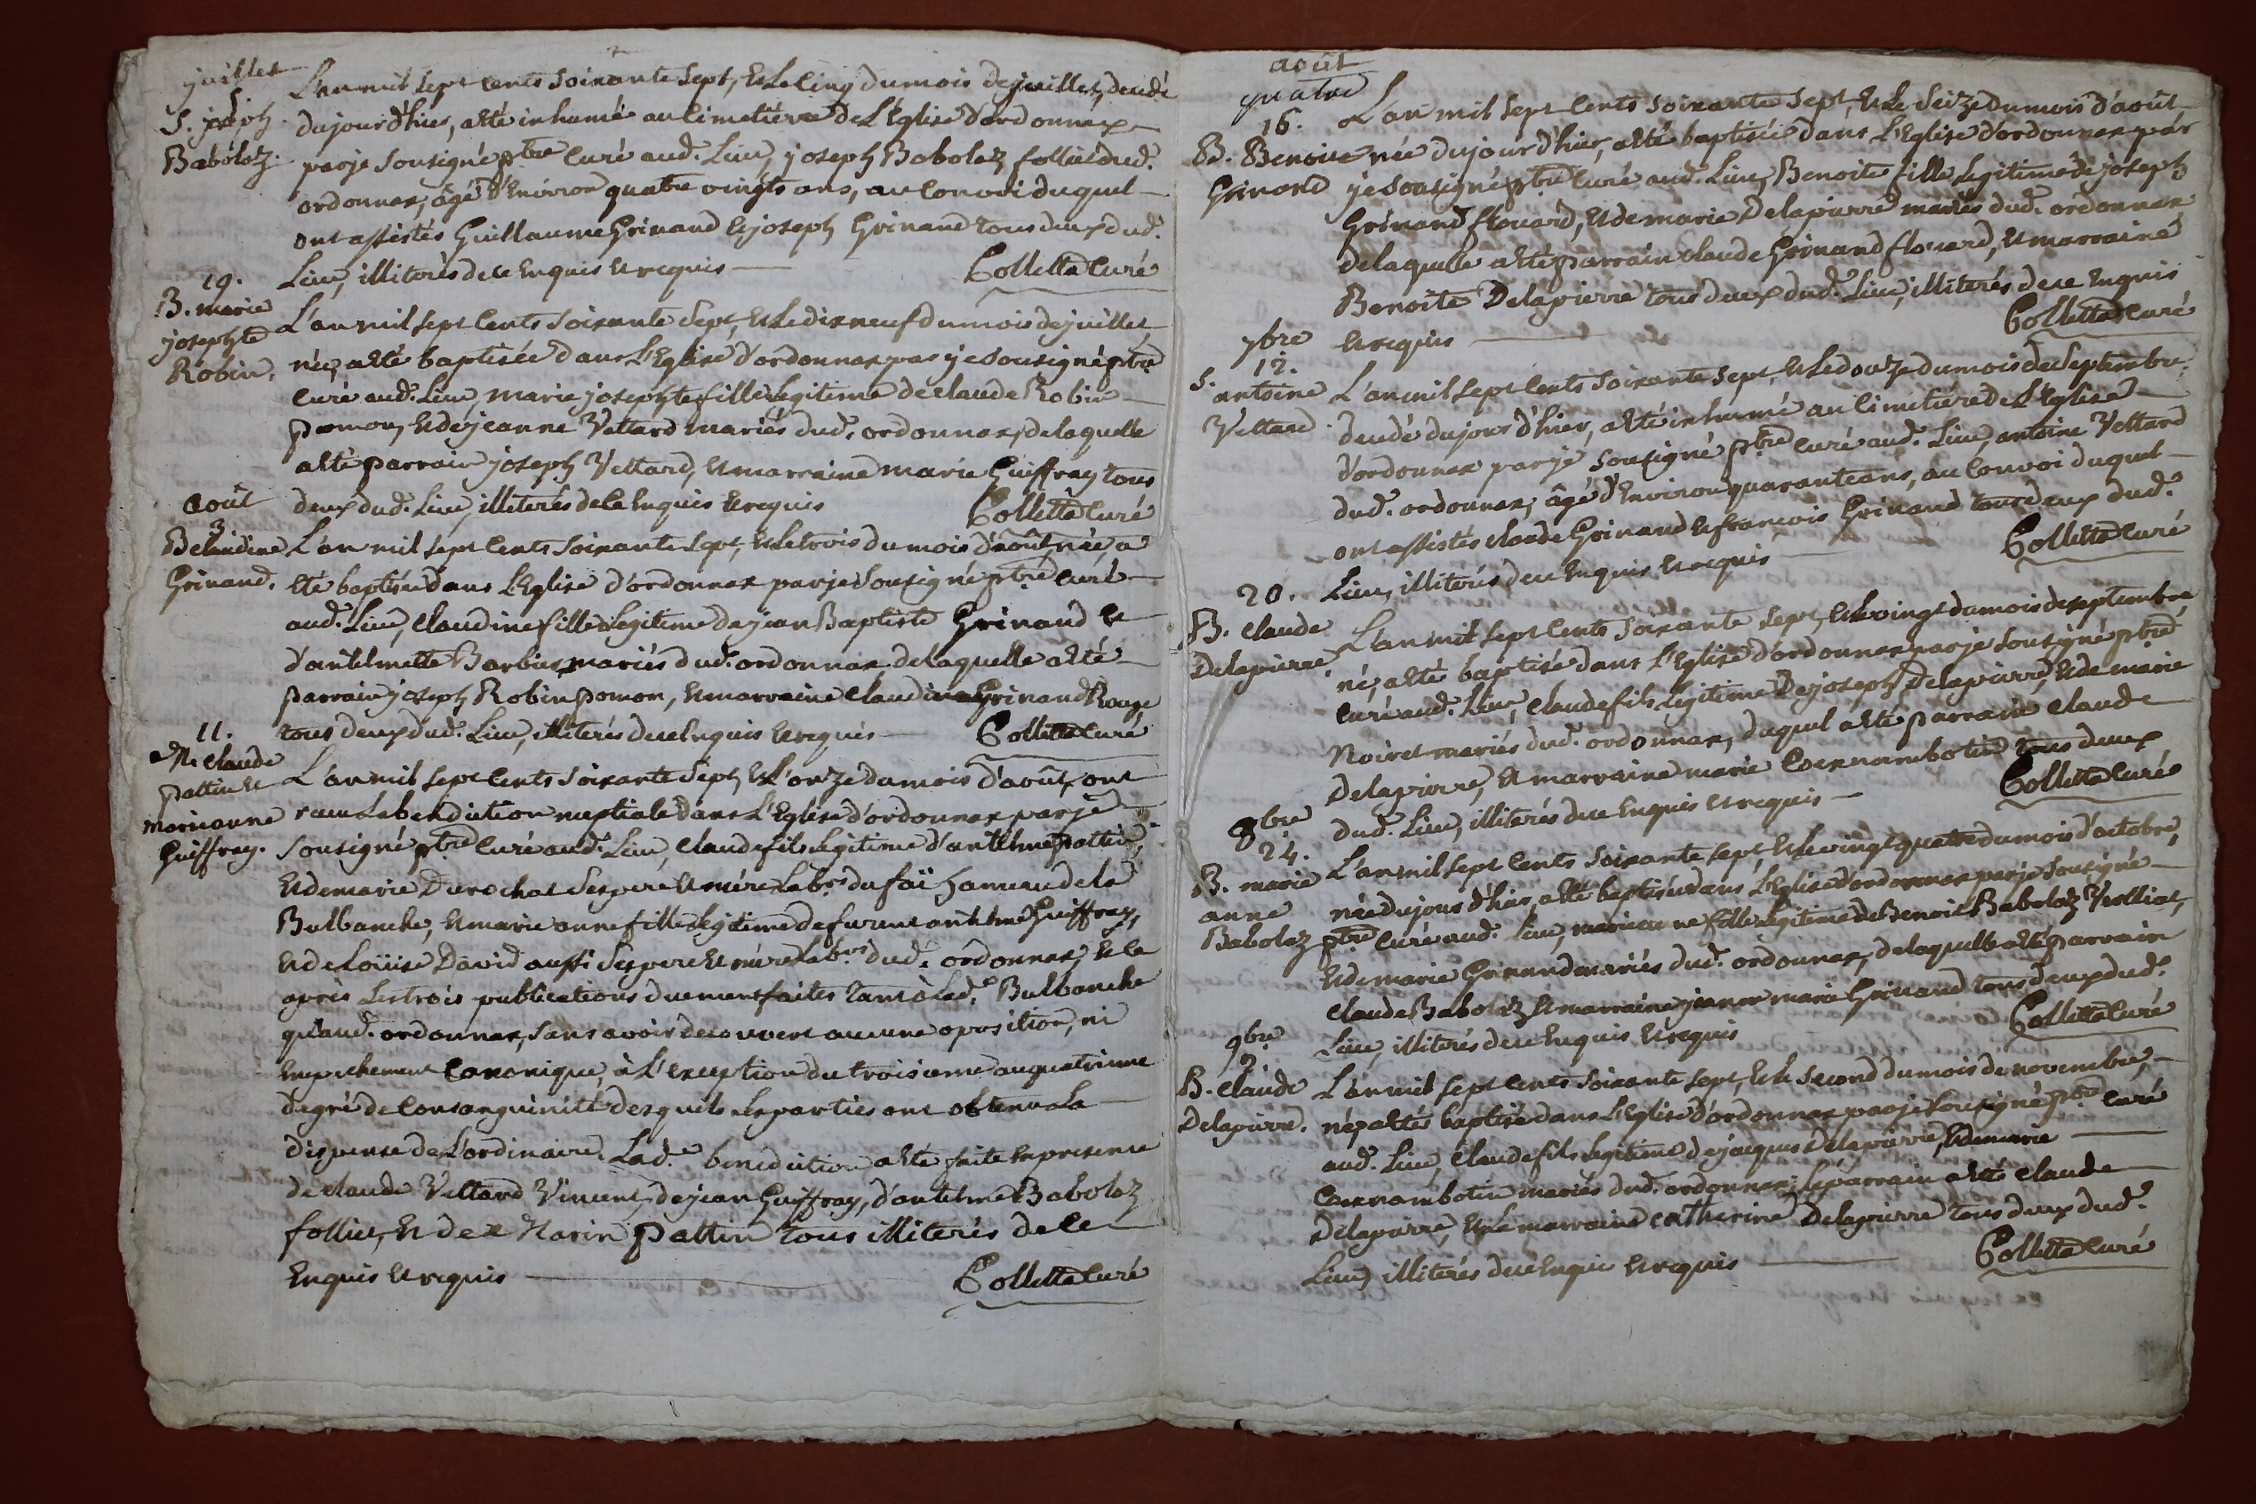 juillet
5.
S. joseph
Babolaz.
L'an mil sept cents soixante sept, et le cinq du mois de juillet, decedé
du jour d'hier, a eté inhumé au cimetière de L'Eglise d'ordonnax
par je sousigné ptre curé aud. Lieu, joseph Babolaz folliet dud.
ordonnax, âgé d'environ quatre vingts ans, au convoi duquel
ont assistés Guillaume Grinand et joseph Grinand tous deux dud.
Lieu, illiterés de ce enquis et requis
Colletta curé
19.
B. marie
josephte
Robin.
L'an mil sept cents soixante sept, et le dix neuf du mois de juillet
née, a eté baptisée dans L'Eglise d'ordonnax par je sousigné ptre
curé aud. Lieu, marie josephte fille legitime de claude Robin
pomon, et de jeanne Vettard mariés dud. ordonnax, de laquelle
a eté parrain joseph Vettard, et marraine marie Guiffray tous
deux dud. Lieu, illiterés de ce enquis et requis
Colletta curé
août
3.
B. claudine
Grinand.
L'an mil sept cents soixante sept, et le trois du mois d'août née, a
eté baptisée dans L'Eglise d'ordonnax par je sousigné ptre curé
aud. Lieu, claudine fille legitime de jean Baptiste Grinand et
d'antelmette Barbier mariés dud. ordonnax de laquelle a eté
parrain joseph Robin pomon, et marraine claudine Grinand Rouge
tous deux dud. Lieu, illiterés de ce enquis et requis
Colletta curé
11.
M. claude
pattin et
marieanne
Guiffray.
L'an mil sept cents soixante sept, et L'onze du mois d'août, ont
reçu La benediction nuptiale dans L'Eglise d'ordonnax par je
sousigné ptre curé aud. Lieu, claude fils legitime d'antelme pattin,
et de marie Durochat ses pere et mére Labrs du faï hameau de la
Bulbanche, et marie anne fille legitime de furent antelme Guiffray,
et de Loüise David aussi ses pere et mére Labrs dud. ordonnax, et ce
après Les trois publications duement faites tant à Lad. Bulbanche
qu'aud. ordonnax, sans avoir decouvert aucune oposition, ni
empechement canonique, à L'exception du troisieme au quatrieme
degré de consanguinité desquels Les parties ont obtenu La
dispense de L'ordinaire. Lad. benediction a eté faite en presence
de claude Vettard Vincent, de jean Guiffray, d'antelme Babolaz
folliet, et de Marin pattin tous illiterés de ce
enquis et requis
Colletta curé
août
quatre
16.
B. Benoite
Grinand
L'an mil sept cents soixante sept, et le seize du mois d'août
née du jour d'hier, a eté baptisée dans L'Eglise d'ordonnax par
je sousigné ptre curé aud. Lieu, Benoite fille legitime de joseph
Grinand flouard, et de marie Delapierre mariés dud. ordonnax
de laquelle a eté parrain claude Grinand flouard, et marraine
Benoite Delapierre tous deux dud. Lieu, illiterés de ce enquis
et requis
Colletta curé
7bre
12.
S. antoine
Vettard
L'an mil sept cents soixante sept, et le douze du mois de septembre,
decedé du jour d'hier, a eté inhumé au cimetière de L'Eglise
d'ordonnax par je sousigné ptre curé aud. Lieu, antoine Vettard
dud. ordonnax, âgé d'environ quarante ans, au convoi duquel
ont assistés claude Grinand et françois Grinand tous deux dud.
Lieu, illiterés de ce enquis et requis
Colletta curé
20.
B. claude
Delapierre
L'an mil sept cents soixante sept, et le vingt du mois de septembre
né, a eté baptisé dans L'Eglise d'ordonnax par je sousigné ptre
curé aud. Lieu, claude fils legitime de joseph Delapierre, et de marie
Noiret mariés dud. ordonnax, duquel a eté parrain claude
Delapierre, et marraine marie Coexnambotin tous deux
dud. Lieu, illiterés de ce enquis et requis
Colletta curé
8bre
24.
B. marie
anne
Babolaz
L'an mil sept cents soixante sept, et le vingt quatre du mois d'octobre,
née du jour d'hier, a eté baptisée dans L'Eglise d'ordonnax par je sousigné
ptre curé aud. Lieu, marieanne fille legitime de Benoit Babolaz Violliat,
et de marie Grinand mariés dud. ordonnax, de laquelle a eté parrain
claude Babolaz, et marraine jeanne marie Grinand tous deux dud.
Lieu, illiterés de ce enquis et requis
Colletta curé
9bre
2.
B. claude
Delapierre.
L'an mil sept cents soixante sept, et le second du mois de novembre,
né, a eté baptisé dans L'Eglise d'ordonnax par je sousigné ptre curé
aud. Lieu, claude fils legitime de jaques Delapierre, et de marie
Coexnambotin mariés dud. ordonnax; le parrain a eté claude
Delapierre, et La marraine catherine Delapierre tous deux dud.
Lieu, illiterés de ce enquis et requis
Colletta curé